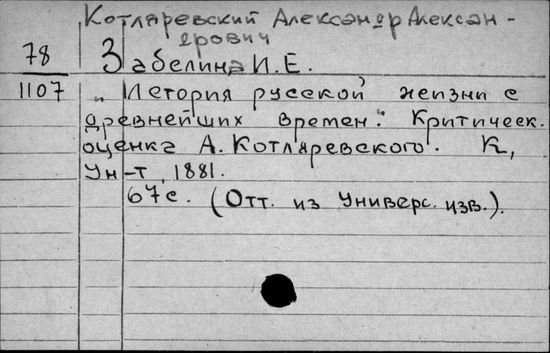 Котляревский Александр Алексан-
дрович
78 Забелина И. Е.
1107 „История русской жизни с
древнейших времен." Критическ.
оценка А. Котляревского. К,
Ун-т, 1881.
67с. (Отт. из Универс. изв.).